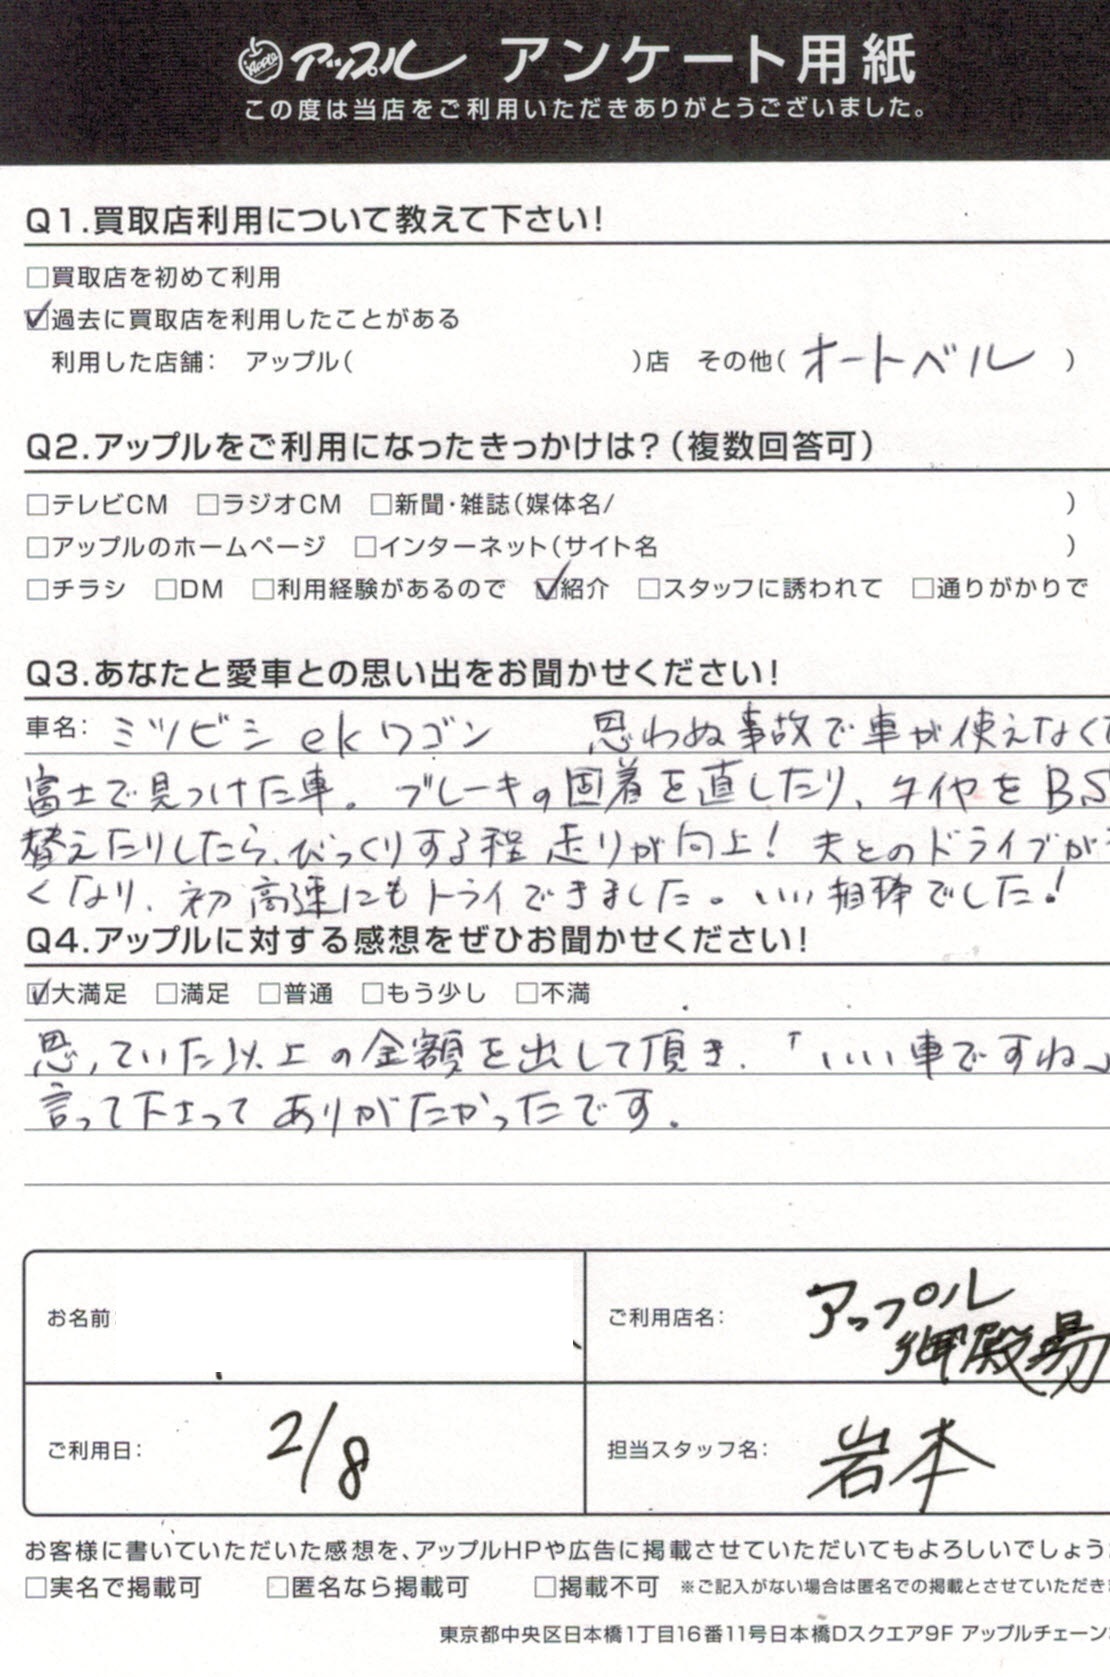 Apple アップル アンケート用紙
この度は当店をご利用いただきありがとうございました。
Q1.買取店利用について教えて下さい!
□買取店を初めて利用
☑過去に買取店を利用したことがある
利用した店舗: アップル( )店 その他( オートベル )
Q2.アップルをご利用になったきっかけは?(複数回答可)
□テレビCM □ラジオCM □新聞・雑誌(媒体名/ )
□アップルのホームページ □インターネット(サイト名 )
□チラシ □DM □利用経験があるので ☑紹介 □スタッフに誘われて □通りがかりで
Q3.あなたと愛車との思い出をお聞かせください!
車名: ミツビシ ekワゴン 思わぬ事故で車が使えなく
富士で見つけた車。ブレーキの固着を直したり、タイヤをBS
替えたりしたら、びっくりする程走りが向上!夫とのドライブが
くなり、初高速にもトライできました。いい相棒でした!
Q4.アップルに対する感想をぜひお聞かせください!
☑大満足 □満足 □普通 □もう少し □不満
思っていた以上の金額を出して頂き、「いい車ですね」
言って下さって ありがたかったです。
お名前:
ご利用店名: アップル
御殿場
ご利用日: 2/8
担当スタッフ名: 岩本
お客様に書いていただいた感想を、アップルHPや広告に掲載させていただいてもよろしいでしょう
□実名で掲載可 □匿名なら掲載可 □掲載不可 ※ご記入がない場合は匿名での掲載とさせていただき
東京都中央区日本橋1丁目16番11号日本橋Dスクエア9F アップルチェーン